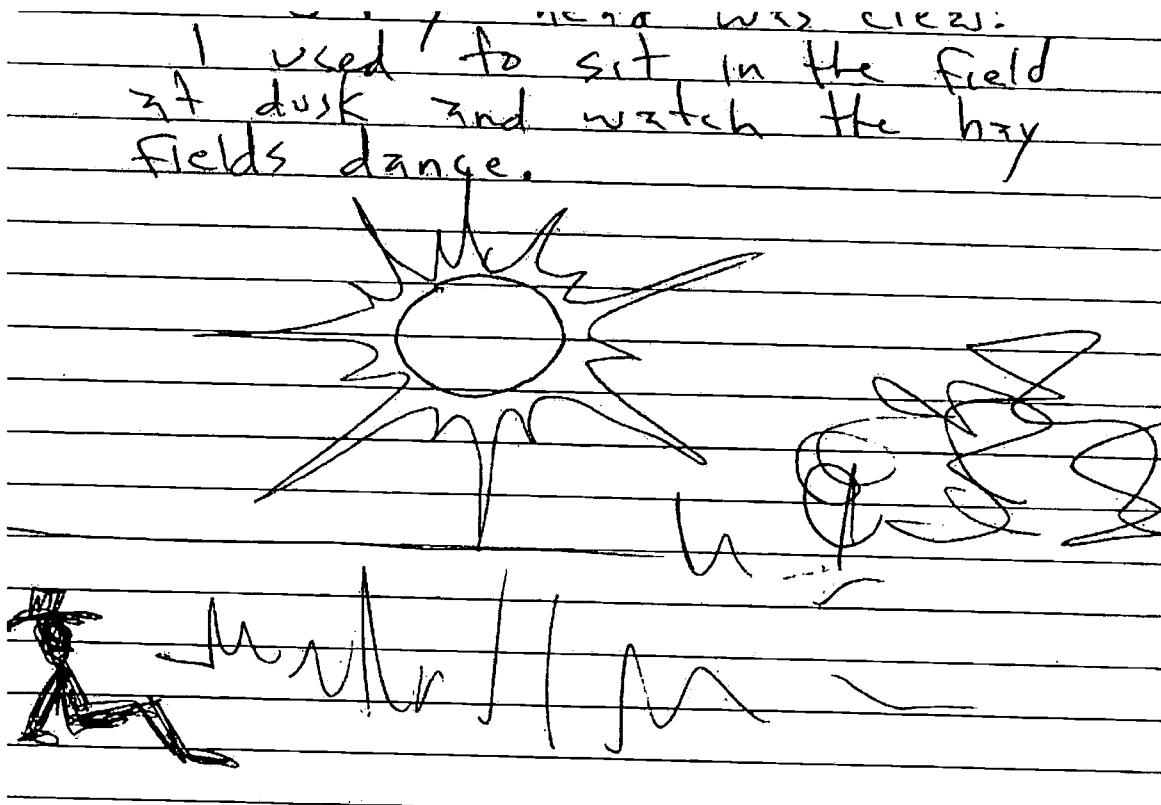 was clear.
I used to sit in the field
at dusk and watch the hay
fields dance.